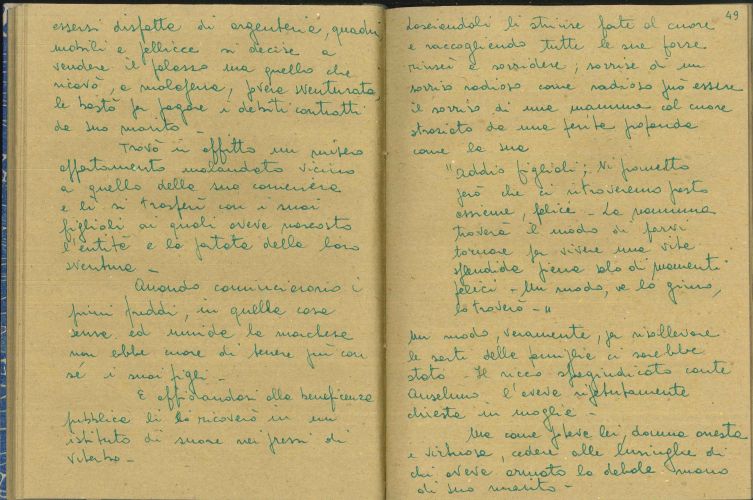 essersi disfatta di argenteria, quadri
mobili e pellicce si decise a
vendere il palazzo ma quello che
ricavò, a malapena, povera sventurata,
le bastò per pagare i debiti contratti
da suo marito -
Trovò in affitto un misero
appartamento malandato vicino
a quello della sua cameriera
e lì si trasferì con i suoi
figlioli ai quali aveva nascosto
l'entità e la portata della loro
sventura -
Quando cominciarono i
primi freddi, in quella casa
senza ed umida la marchesa
non ebbe cuore di tenere più con
sé i suoi figli -
E affidandosi alla beneficenza
pubblica li fò ricoverò in un
istituto di suore nei pressi di
Viterbo -
49
Lasciandoli li strinse forte al cuore
e raccogliendo tutte le sue forze
riuscì a sorridere; sorrise di un
sorriso radioso come radioso può essere
il sorriso di una mamma col cuore
straziato da una ferita profonda
come la sua
"Addio figlioli; Vi prometto
però che ci ritroveremo presto
assieme, felici - La mamma
troverà il modo di farvi
tornare per vivere una vita
splendida piena solo di momenti
felici - Un modo, ve lo giuro,
lo troverò - "
Un modo, veramente, per risollevare
le sorti della famiglia ci sarebbe
stato - Il ricco spregiudicato conte
Anselmo l'aveva ripetutamente
chiesta in moglie -
Ma come poteva lei, donna onesta
e virtuosa, cedere alle lusinghe di
chi aveva armato la debole mano
di suo marito -